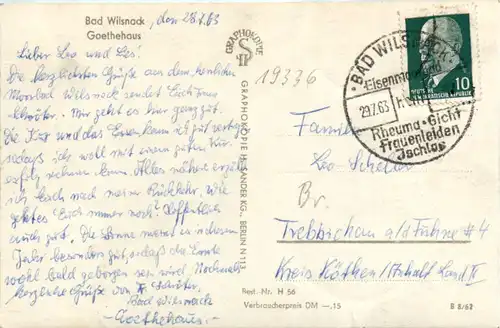 Bad Wilsnack, den 28.7.63
Goethehaus
Lieber Leo und
Die herzlichsten Grüße aus dem herrlichen
Moorbad Wilsnack sendet Euch
Mir geht es hier ganz gut.
Die Kur und das Essen kann ich gut vertragen
sodaß ich wohl mit einem guten Kur-
erfolg rechnen kann. Alles nähere erzähle
ich Euch nach meiner Rückkehr. Wie
geht es Euch immer noch? Hoffentlich
auch gut. Die Sonne meint es in diesem
Jahr besonders gut, sodaß die Ernte
wohl bald geborgen sein wird. Nochmals
herzliche Grüße von
Bad Wilsnack
Goethehaus
GRAPHOKOPIE
GRAPHOKOPIE H. SANDER KG., BERLIN N 113
19336
BAD WILSNACK
Eisenmoorbad
29.7.63
Rheuma · Gicht
Frauenleiden
Ischias
10
DEUTSCHE
DEMOKRATISCHE REPUBLIK
Familie
Leo
Br.
Trebbichau a/d Fuhne # 4
Kreis Köthen/Anhalt Land II
Best.-Nr. H 56
Verbraucherpreis DM —,15
B 8/62